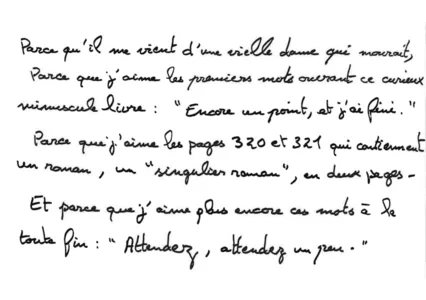 Parce qu'il me vient d'une vieille dame qui mourait,
Parce que j'aime les premiers mots ouvrant ce curieux
minuscule livre : "Encore un point, et j'ai fini."
Parce que j'aime les pages 320 et 321 qui contiennent
un roman, un "singulier roman", en deux pages -
Et parce que j'aime plus encore ces mots à la
toute fin : "Attendez, attendez un peu."